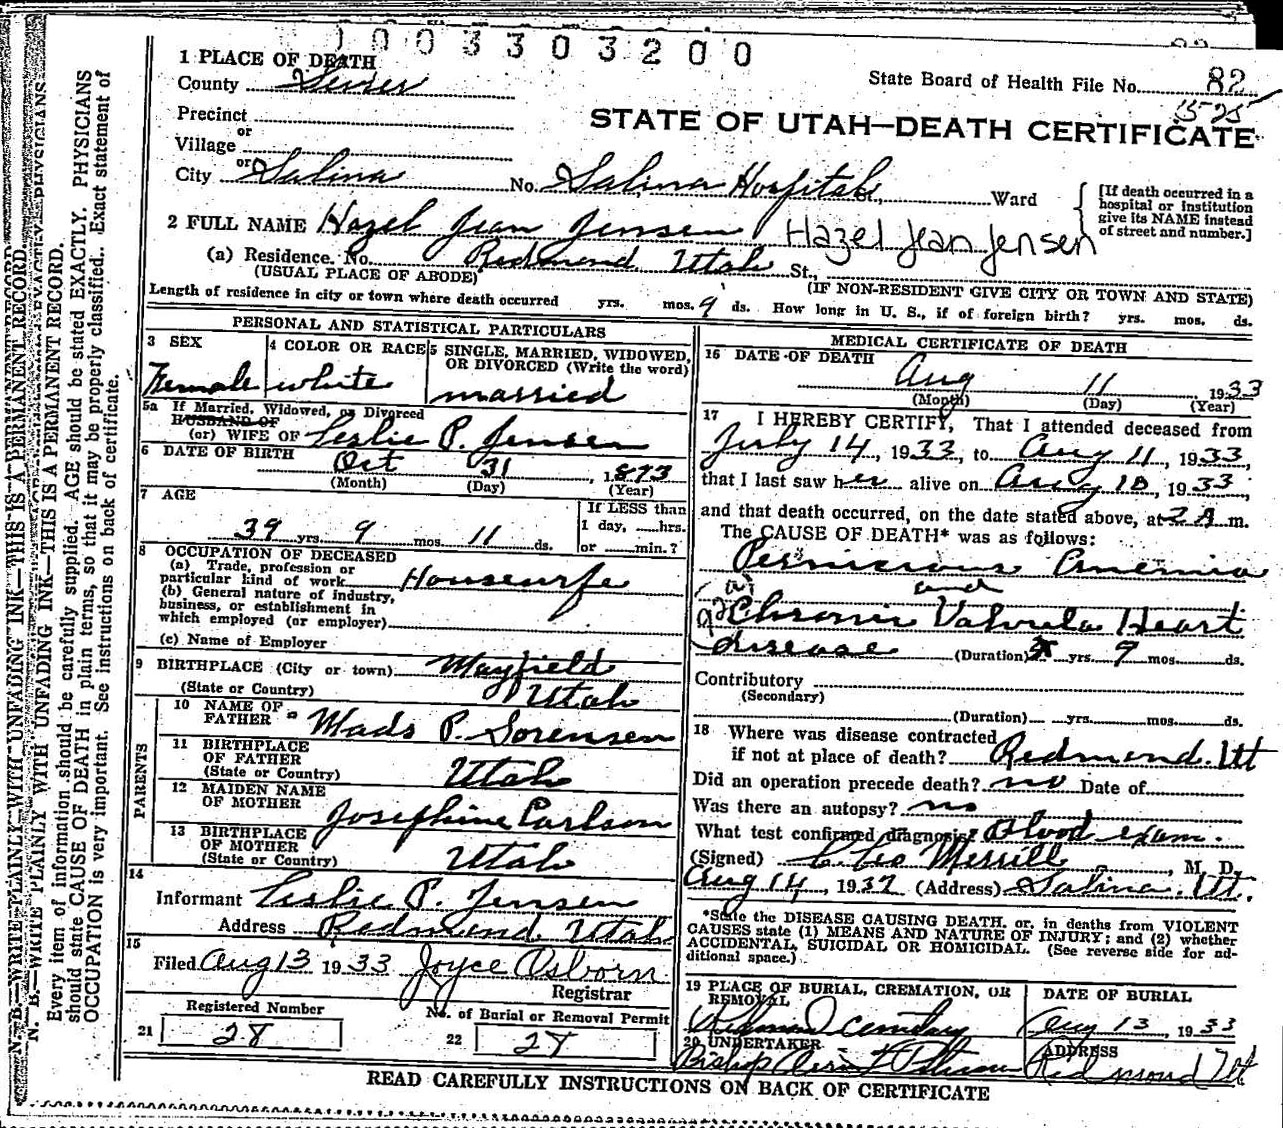 1003303200
1 PLACE OF DEATH
County Sevier
State Board of Health File No. 82
1525
Precinct
or
Village
or
City Salina No. Salina Hospital, Ward
STATE OF UTAH—DEATH CERTIFICATE
[If death occurred in a
hospital or institution
give its NAME instead
of street and number.]
2 FULL NAME Hazel Jean Jensen Hazel Jean Jensen
(a) Residence. No. Redmond Utah St.,
(USUAL PLACE OF ABODE) (IF NON-RESIDENT GIVE CITY OR TOWN AND STATE)
Length of residence in city or town where death occurred yrs. mos. 9 ds. How long in U. S., if of foreign birth? yrs. mos. ds.
PERSONAL AND STATISTICAL PARTICULARS
3 SEX
Female
4 COLOR OR RACE
white
5 SINGLE, MARRIED, WIDOWED,
OR DIVORCED (Write the word)
married
5a If Married, Widowed, or Divorced
HUSBAND OF
(or) WIFE OF Leslie P. Jensen
6 DATE OF BIRTH Oct 31, 1893
(Month) (Day) (Year)
7 AGE
39 yrs. 9 mos. 11 ds.
If LESS than
1 day, hrs.
or min.?
8 OCCUPATION OF DECEASED
(a) Trade, profession or
particular kind of work Housewife
(b) General nature of industry,
business, or establishment in
which employed (or employer)
(c) Name of Employer
9 BIRTHPLACE (City or town) Mayfield
(State or Country) Utah
PARENTS
10 NAME OF
FATHER Mads P. Sorensen
11 BIRTHPLACE
OF FATHER
(State or Country) Utah
12 MAIDEN NAME
OF MOTHER Josephine Carlson
13 BIRTHPLACE
OF MOTHER
(State or Country) Utah
14
Informant Leslie P. Jensen
Address Redmond Utah
15
Filed Aug 13 1933 Joyce Osborn
Registrar
Registered Number
21 28
No. of Burial or Removal Permit
22 27
MEDICAL CERTIFICATE OF DEATH
16 DATE OF DEATH
Aug 11 1933
(Month) (Day) (Year)
17 I HEREBY CERTIFY, That I attended deceased from
July 14, 1933, to Aug 11, 1933,
that I last saw her alive on Aug 10, 1933,
and that death occurred, on the date stated above, at 2 A m.
The CAUSE OF DEATH* was as follows:
Pernicious Anemia
and
Chronic Valvula Heart
disease (Duration) yrs. 9 mos. ds.
Contributory
(Secondary)
(Duration) yrs. mos. ds.
18 Where was disease contracted
if not at place of death? Redmond. Ut
Did an operation precede death? no Date of
Was there an autopsy? no
What test confirmed diagnosis? Blood exam.
(Signed) C. Leo Merrill, M. D.
Aug 14, 1937 (Address) Salina. Ut.
*State the DISEASE CAUSING DEATH, or, in deaths from VIOLENT
CAUSES state (1) MEANS AND NATURE OF INJURY; and (2) whether
ACCIDENTAL, SUICIDAL OR HOMICIDAL. (See reverse side for ad-
ditional space.)
19 PLACE OF BURIAL, CREMATION, OR
REMOVAL
Redmond Cemetary
DATE OF BURIAL
Aug 13, 1933
20 UNDERTAKER
Bishop
ADDRESS
Redmond Ut
READ CAREFULLY INSTRUCTIONS ON BACK OF CERTIFICATE
N. B.—WRITE PLAINLY WITH UNFADING INK—THIS IS A PERMANENT RECORD.
Every item of information should be carefully supplied. AGE should be stated EXACTLY. PHYSICIANS
should state CAUSE OF DEATH in plain terms, so that it may be properly classified. Exact statement of
OCCUPATION is very important. See instructions on back of certificate.